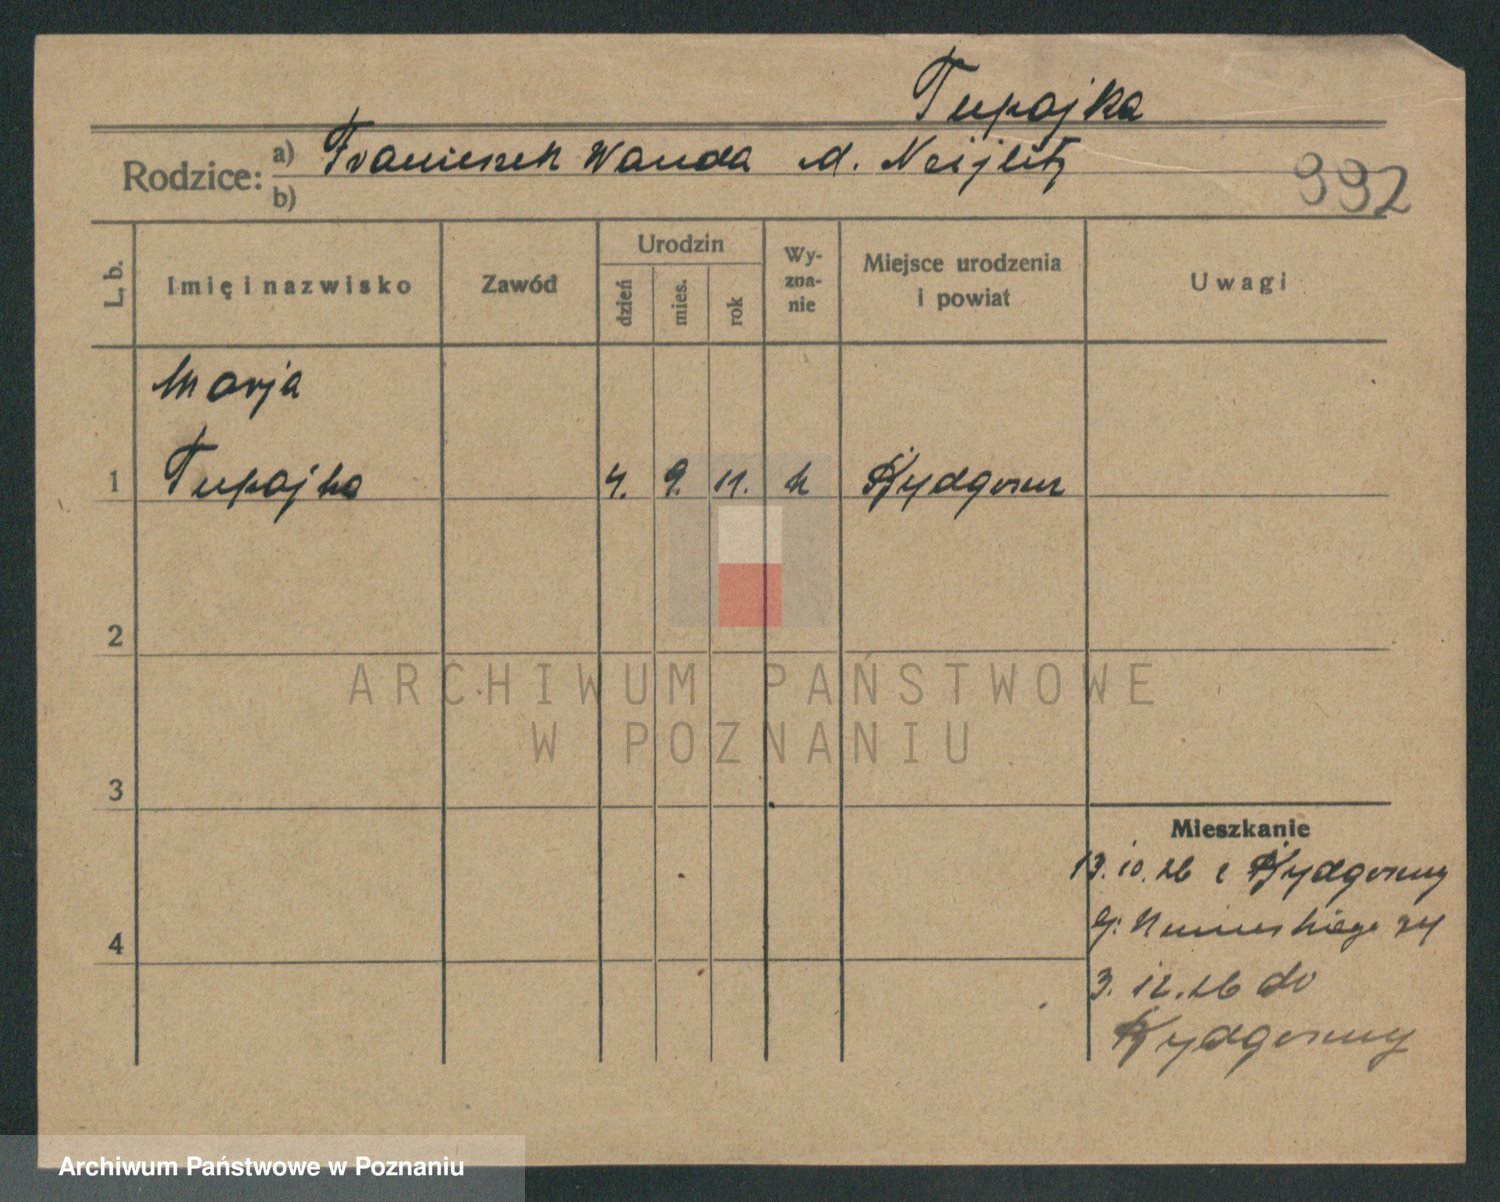 Tupajka
Rodzice: a) Franciszek Wanda d.
b)
992
L. b.
Imię i nazwisko
Zawód
Urodzin
dzień
mies.
rok
Wy-
zna-
nie
Miejsce urodzenia
i powiat
Uwagi
Marja
1 Tupajka 4. 9. 11. k Bydgoszcz
2
3
4
Mieszkanie
13. 10. 26 z Bydgoszczy
24
3. 12. 26 do
Bydgoszczy
ARCHIWUM PAŃSTWOWE
W POZNANIU
Archiwum Państwowe w Poznaniu